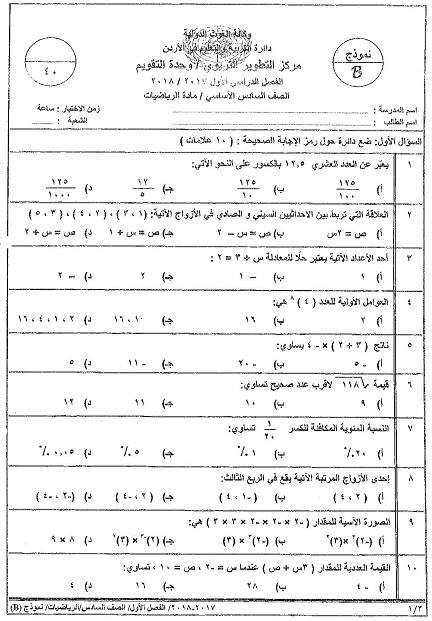 وكالة الغوث الدولية
دائرة التربية والتعليم في الأردن
مركز التطوير التربوي / وحدة التقويم
الفصل الدراسي الأول ٢٠١٧ / ٢٠١٨
الصف السادس الأساسي / مادة الرياضيات
نموذج
B
٤٠
اسم المدرسة :
زمن الاختبار : ساعة
اسم الطالب :
الشعبة :
السؤال الأول: ضع دائرة حول رمز الإجابة الصحيحة : ( ١٠ علامات )
١ يعبّر عن العدد العشري ١٢,٥ بالكسور على النحو الآتي:
أ) ١٢٥/١٠٠ ب) ١٢٥/١٠ جـ) ١٢/٥ د) ١٢٥/١٠٠٠
٢ العلاقة التي تربط بين الاحداثيين السيني و الصادي في الأزواج الآتية: (١ ، ٣) ، (٢ ، ٤) ، (٣ ، ٥)
أ) ص = ٢س ب) ص = س – ٢ جـ) ص = س + ١ د) ص = س + ٢
٣ أحد الأعداد الآتية يعتبر حلًا للمعادلة س + ٣ = ٢ :
أ) ١ ب) – ١ جـ) ٢ د) – ٢
٤ العوامل الأولية للعدد (٤)^٨ هي:
أ) ٢ ب) ١٦ جـ) ١ ، ١٦ د) ٢ ، ١ ، ٤ ، ١٦
٥ ناتج (٣ + ٢) × -٤ يساوي:
أ) – ٥ ب) – ٢٠ جـ) – ١١ د) ٥
٦ قيمة √١١٨ لأقرب عدد صحيح تساوي:
أ) ٩ ب) ١٠ جـ) ١١ د) ١٢
٧ النسبة المئوية المكافئة للكسر ١/٢٠ تساوي:
أ) ٢٠٪ ب) ١٪ جـ) ٥٪ د) ٠,٠٥٪
٨ إحدى الأزواج المرتبة الآتية يقع في الربع الثالث:
أ) (٢ ، ٤) ب) (-١ ، ٤) جـ) (٢ ، -٤) د) (-٢ ، -٤)
٩ الصورة الأسية للمقدار (-٢ × -٢ × -٢ × ٣ × ٣) هي:
د) ٨ × ٩
١٠ القيمة العددية للمقدار (٣س + ص) عندما س = -٢ ، ص = ١٠ تساوي:
أ) -٤ ب) ٢٨ جـ) ١٦ د) ٤
٢٠١٧-٢٠١٨/ الفصل الأول/ الصف السادس/الرياضيات/ نموذج (B)
١/٣